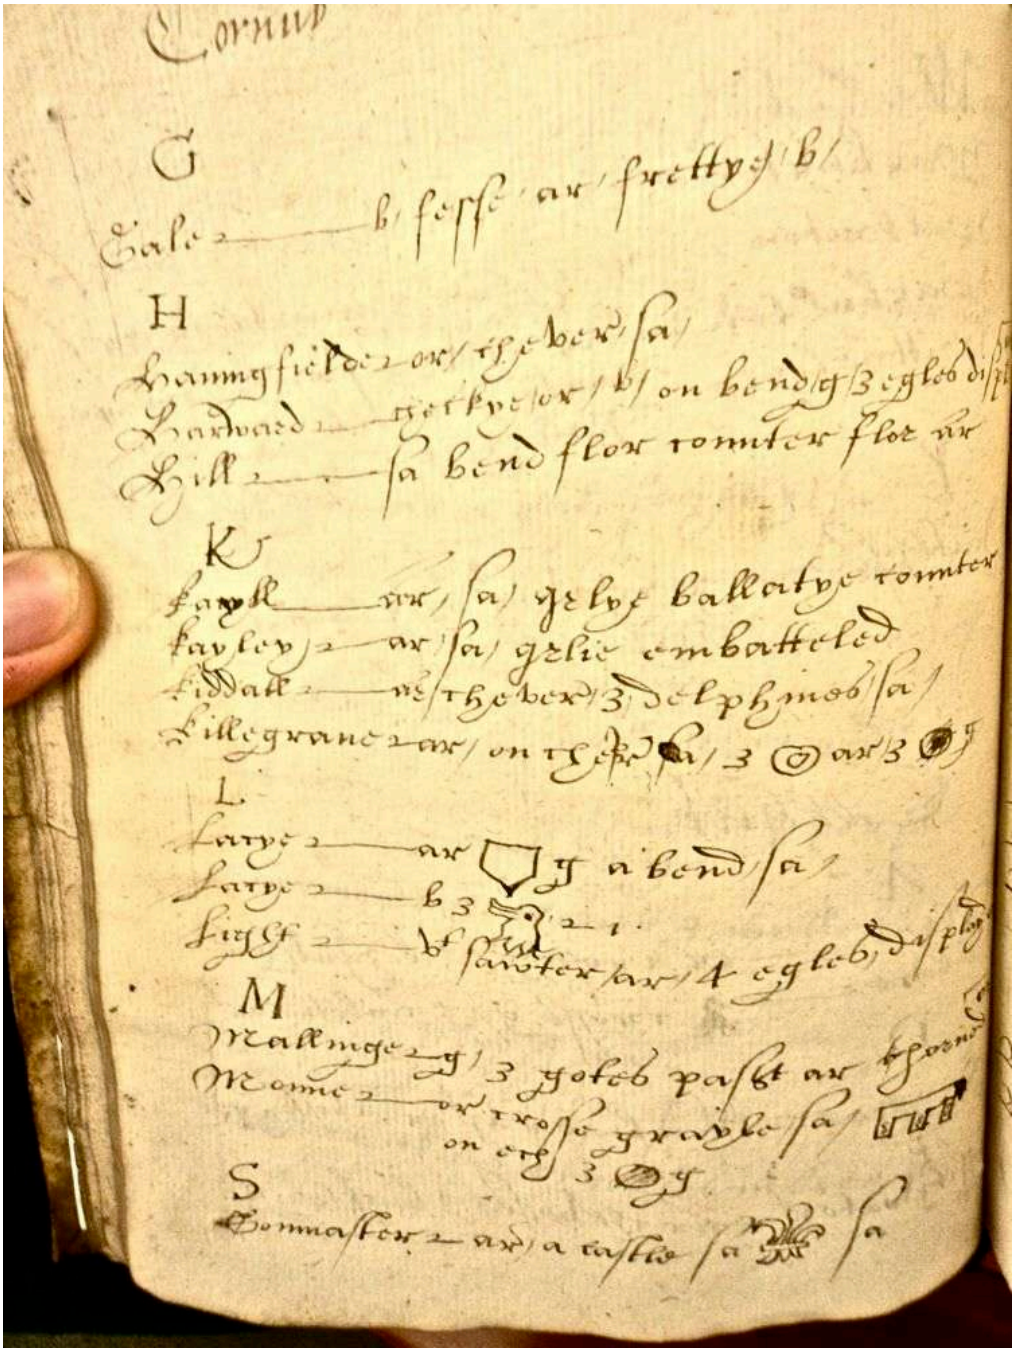 Cornub
G
Gale b, fesse ar frettye, b,
H
Haningfielde or, chever sa,
Harward checkye or, b, on bend g 3 egles displ
Hill sa bend flor counter flor ar
K
kayll ar, sa, gelye ballatye counter
kayley ar, sa, gelie embatteled
kiddall ar chever, 3 delphines, sa,
killegrane ar, on chever sa, 3 ar 3 g
L
Lacye ar g a bend, sa,
Lacye b 3 2 1.
Light vt sawter, ar, 4 egles, display
M
Mallinge g, 3 gotes past ar
Monne or crosse grayle sa,
on ech 3 g
S
Sonmaster ar, a castle sa sa